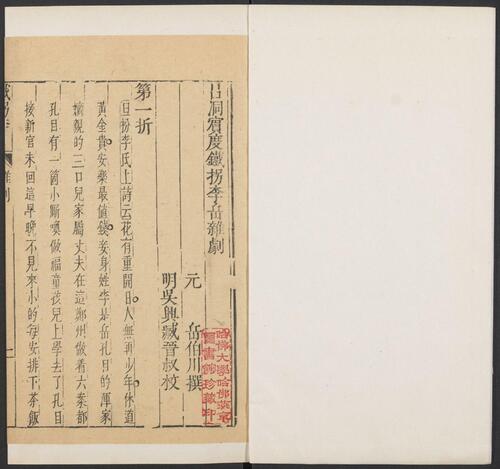 呂洞賓度鐵拐李岳雜劇
元 岳伯川撰
明吳興臧晉叔校
第一折
旦扮李氏上詩云花有重開日人無再少年休道
黃金貴安樂最值錢妾身姓李是岳孔目的渾家
嫡親的三口兒家屬丈夫在這鄭州做着六案都
孔目有一箇小廝喚做福童孩兒上學去了孔目
接新官未回這早晚不見來小的每安排下茶飯
鐵拐李 雜劇 一
哈佛大學哈佛燕京
圖書館珍藏印